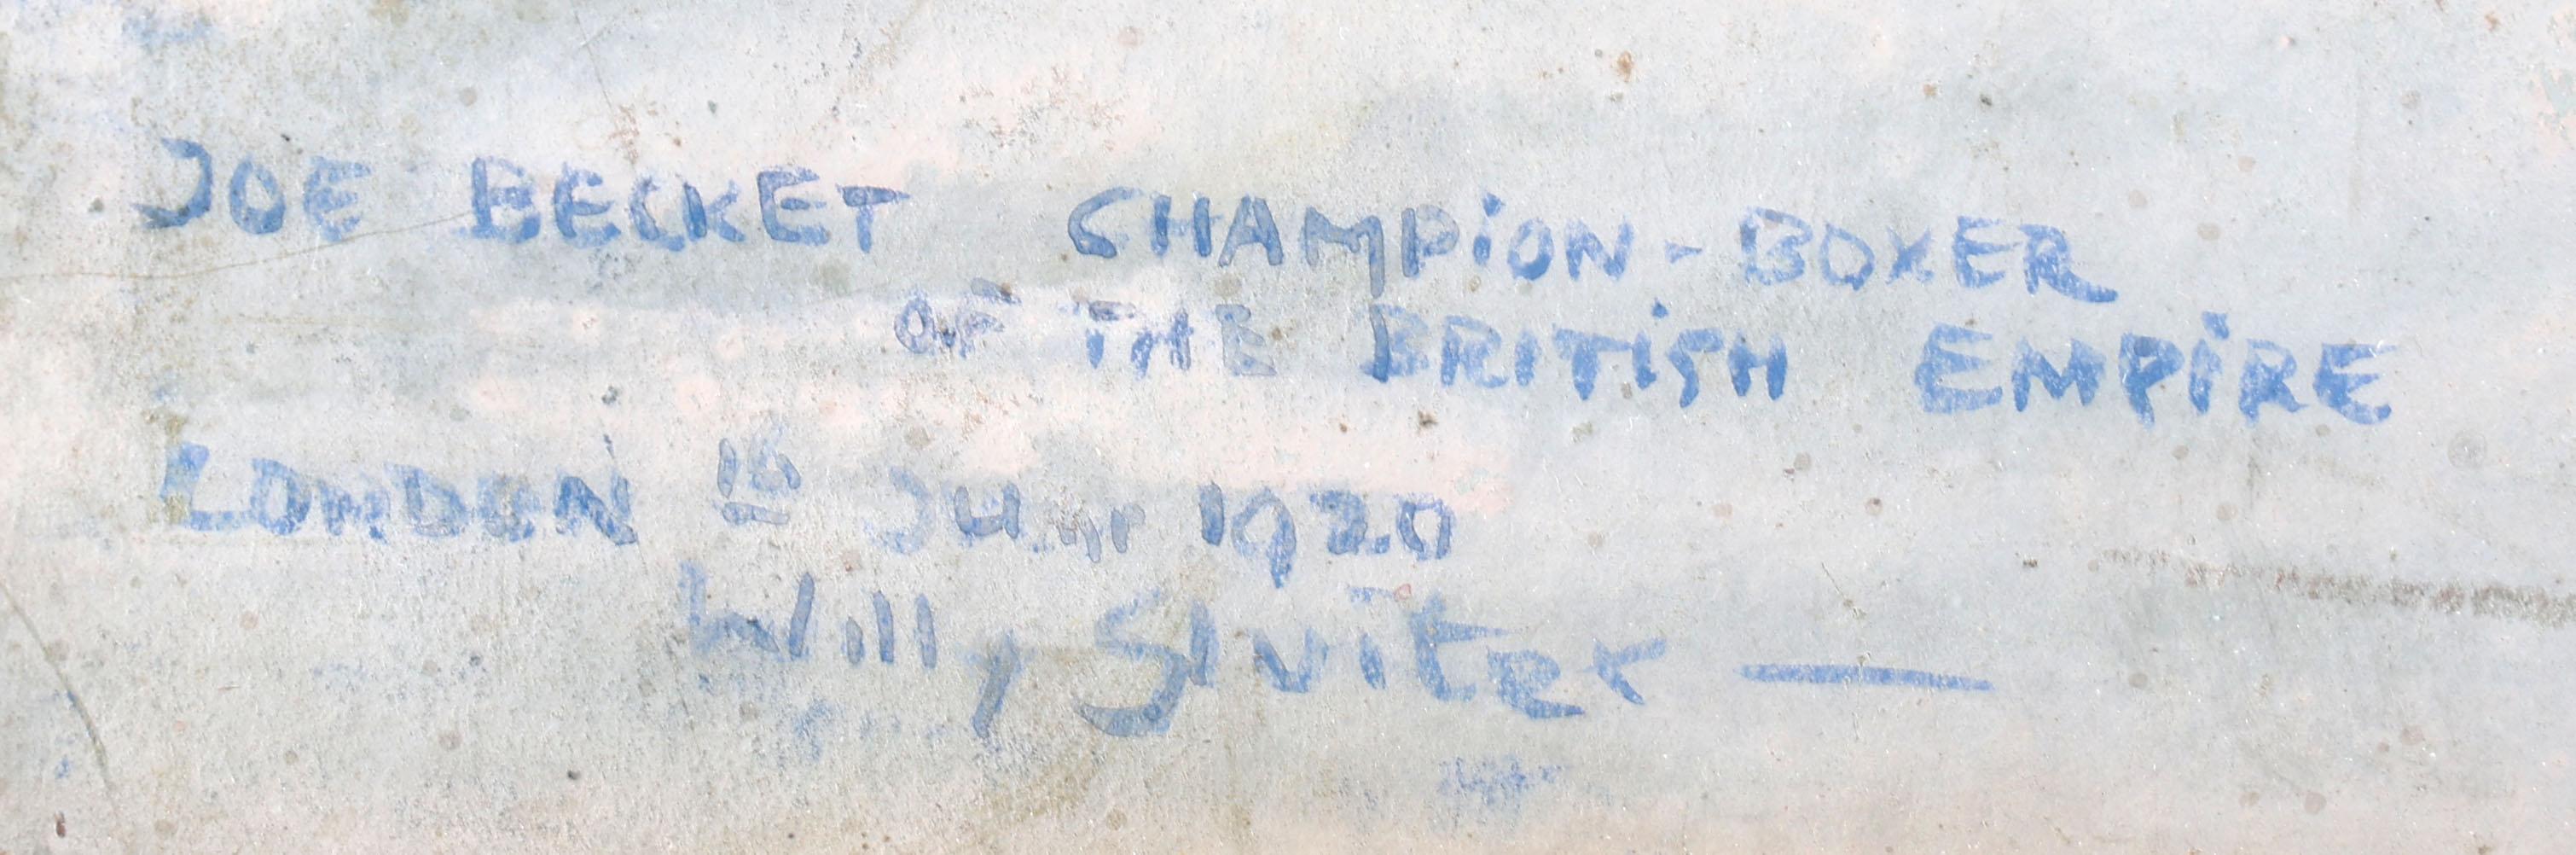 JOE BECKET CHAMPiON-BOXER
OF THE BRITiSH EMPiRE
LONDON 16 1920
Willy Sluiter —